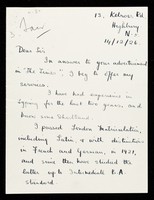 12, Kelross Rd.
Highbury
N.5
14/12/26.
Dear Sir
In answer to your advertisement
in "The Times", I beg to offer my
services.
I have had experience in
typing for the last two years, and
know some Shorthand.
I passed London Matriculation,
including Latin, & with distinction
in French and German, in 1921,
and since then have studied the
latter up to Intermediate B.A.
standard.